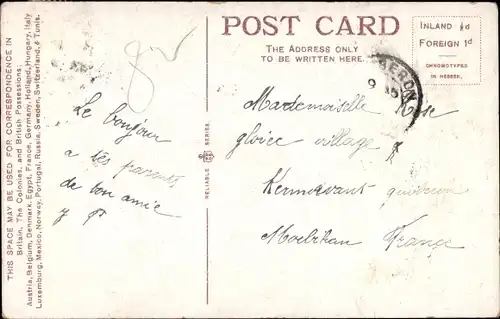 THIS SPACE MAY BE USED FOR CORRESPONDENCE IN
Britain, The Colonies, and British Possessions
Austria, Belgium, Denmark, Egypt, France, Germany, Holland, Hungary, Italy
Luxemburg, Mexico, Norway, Portugal, Russia, Sweden, Switzerland, & Tunis.
POST CARD
THE ADDRESS ONLY
TO BE WRITTEN HERE.
INLAND ½d
FOREIGN 1d
CHROMOTYPED
IN HESSEN.
RELIABLE SERIES.
Le bonjour
a tes parents
de bon amie
y P
Mademoiselle Rose
gloire village
Kermorvant quiberon
Morbihan France